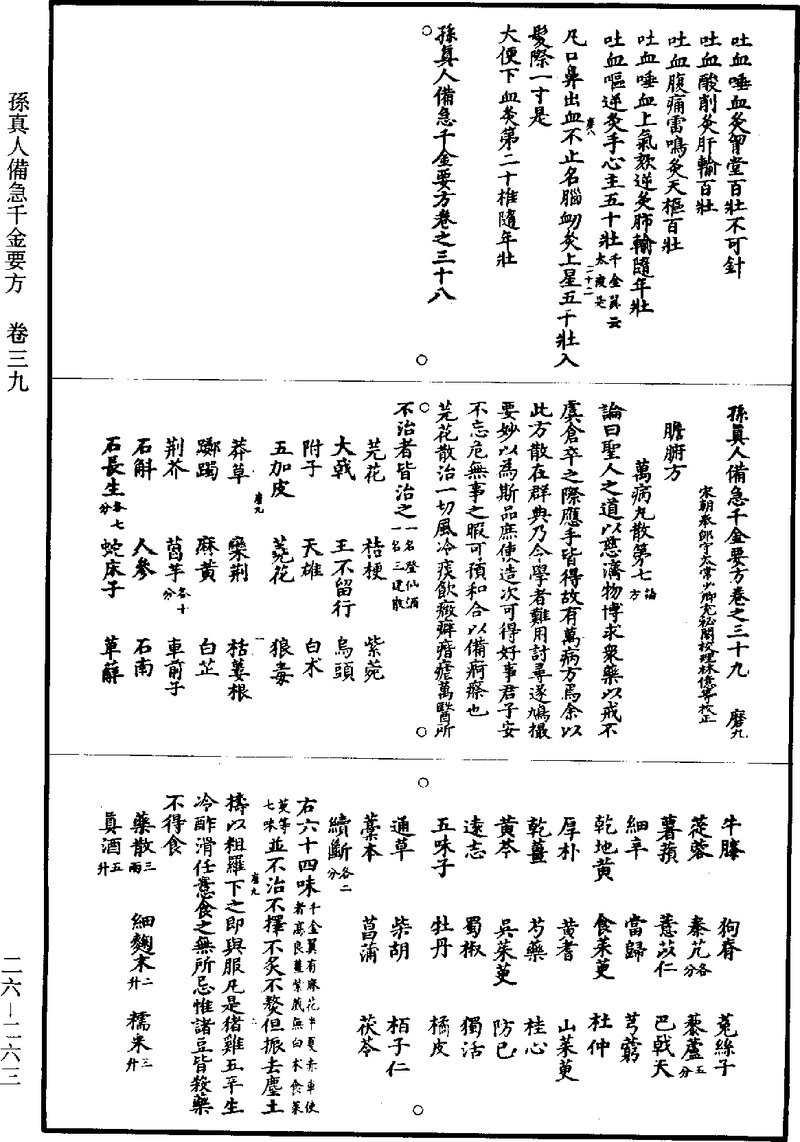 孫真人備急千金要方　卷三九
吐血唾血灸胷堂百壯不可針
吐血酸削灸肝輸百壯
吐血腹痛雷鳴灸天樞百壯
吐血唾血上氣欬逆灸肺輸隨年壯
吐血嘔逆灸手心主五十壯千金翼云太淩是
凡口鼻出血不止名腦衂灸上星五十壯入
髮際一寸是
大便下血灸第二十椎隨年壯
孫真人備急千金要方卷之三十八
孫真人備急千金要方卷之三十九　磨九
宋朝奉郎守太常少卿充祕閣校理林億等校正
膽腑方
萬病丸散第七論方
論曰聖人之道以慈濟物博求衆藥以戒不
虞倉卒之際應手皆得故有萬病方焉余以
此方散在群典乃令學者難用討尋遂鳩撮
要妙以為斯品庶使造次可得好事君子安
不忘危無事之暇可預和合以備疴瘵也
芫花散治一切風冷痰飲癥癖痞瘧萬醫所
不治者皆治之一名登仙酒一名三建散
芫花　桔梗　紫菀
大戟　王不留行　烏頭
附子　天雄　白术
五加皮　蕘花　狼毒
莽草　欒荆　栝蔞根
躑躅　麻黄　白芷
荆芥　茵芋各十分　車前子
石斛　人參　石南
石長生各七分　蛇床子　萆薢
牛膝　狗脊　菟絲子
蓯蓉　秦艽各分　藜蘆五分
薯蕷　薏苡仁　巴戟天
細辛　當歸　芎藭
乾地黄　食茱萸　杜仲
厚朴　黄耆　山茱萸
乾薑　芍藥　桂心
黄芩　吳茱萸　防已
遠志　蜀椒　獨活
五味子　牡丹　橘皮
通草　柴胡　栢子仁
藁本　菖蒲　茯苓
續斷各二分
右六十四味千金翼有麻花半夏赤車使者高良薑紫葳無白术食茱萸等七味並不治不擇不炙不熬但振去塵土
擣以粗羅下之即與服凡是猪雞五辛生
冷酢滑任意食之無所忌惟諸豆皆殺藥
不得食
藥散三兩　細麴末二升　糯米三升
真酒五升
二六—二六三